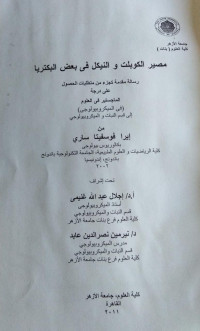 جامعة الأزهر
كلية العلوم ( بنات )
مصير الكوبلت و النيكل فى بعض البكتريا
رسالة مقدمة كجزء من متطلبات الحصول
على درجة
الماجستير فى العلوم
(فى الميكروبيولوجى)
إلى قسم النبات و الميكروبيولوجى
من
إيرا فوسفيتا سارى
بكالوريوس بيولوجى
كلية الرياضيات و العلوم الطبيعية، الجامعة التكنولوجية باندونج
باندونج، إندونيسيا
٢٠٠٦
تحت إشراف
أ.د/ إجلال عبد الله غنيمى
أستاذ الميكروبيولوجى
قسم النبات والميكروبيولوجى
كلية العلوم فرع بنات جامعة الأزهر
د/ نيرمين نصر الدين عابد
مدرس الميكروبيولوجى
قسم النبات و الميكروبيولوجى
كلية العلوم فرع بنات جامعة الأزهر
كلية العلوم، جامعة الأزهر
القاهرة
٢٠١١